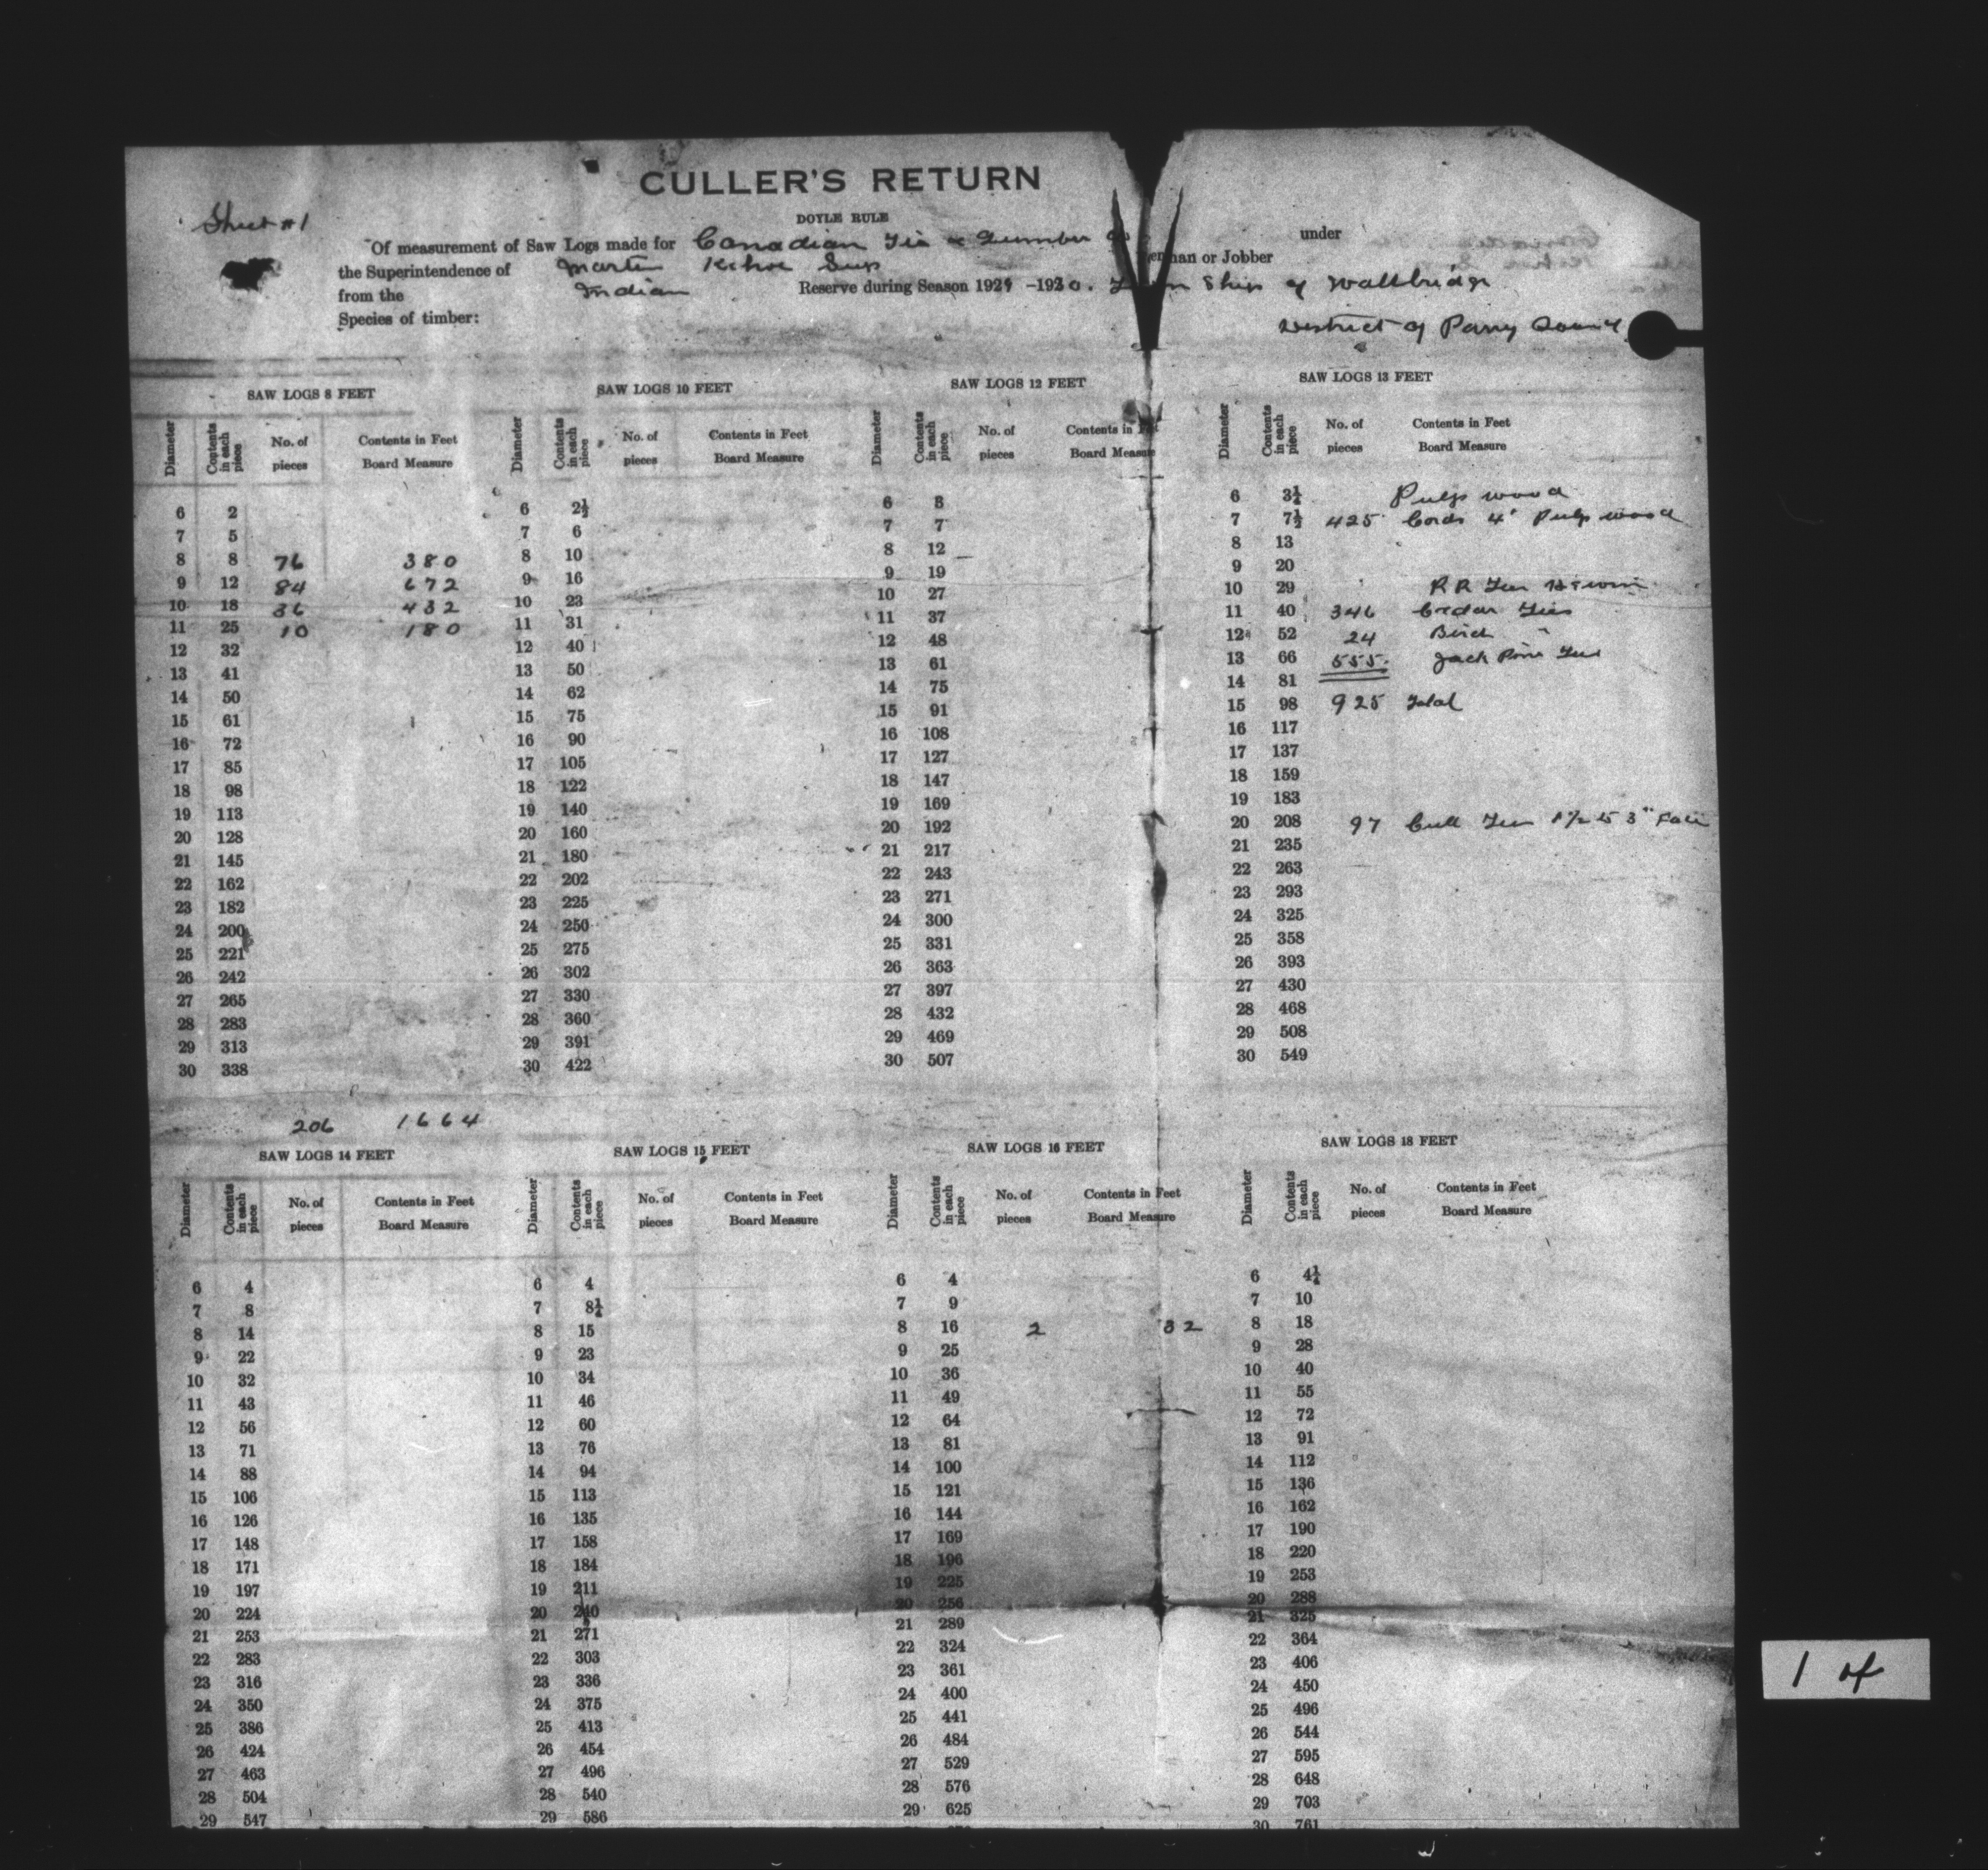 CULLER'S RETURN
Sheet #1
DOYLE RULE
Of measurement of Saw Logs made for Canadian Tie & Lumber Co under
the Superintendence of Martin Kehoe Sup Foreman or Jobber
from the Indian Reserve during Season 1929 -1930. Township of Wallbridge
Species of timber: District of Parry Sound
SAW LOGS 8 FEET SAW LOGS 10 FEET SAW LOGS 12 FEET SAW LOGS 13 FEET
Diameter Contents in each piece No. of pieces Contents in Feet Board Measure Diameter Contents in each piece No. of pieces Contents in Feet Board Measure Diameter Contents in each piece No. of pieces Contents in Feet Board Measure Diameter Contents in each piece No. of pieces Contents in Feet Board Measure
6 2 6 2½ 6 3 6 3¼ Pulp wood
7 5 7 6 7 7 7 7½ 425 Cords 4' Pulp wood
8 8 76 380 8 10 8 12 8 13
9 12 84 672 9 16 9 19 9 20
10 18 36 432 10 23 10 27 10 29 R R Ties
11 25 10 180 11 31 11 37 11 40 346 Cedar Ties
12 32 12 40 12 48 12 52 24 Birch "
13 41 13 50 13 61 13 66 555. Jack Pine Ties
14 50 14 62 14 75 14 81
15 61 15 75 15 91 15 98 925 Total
16 72 16 90 16 108 16 117
17 85 17 105 17 127 17 137
18 98 18 122 18 147 18 159
19 113 19 140 19 169 19 183
20 128 20 160 20 192 20 208 97 Cull Ties to 3" Face
21 145 21 180 21 217 21 235
22 162 22 202 22 243 22 263
23 182 23 225 23 271 23 293
24 200 24 250 24 300 24 325
25 221 25 275 25 331 25 358
26 242 26 302 26 363 26 393
27 265 27 330 27 397 27 430
28 283 28 360 28 432 28 468
29 313 29 391 29 469 29 508
30 338 30 422 30 507 30 549
206 1664
SAW LOGS 14 FEET SAW LOGS 15 FEET SAW LOGS 16 FEET SAW LOGS 18 FEET
Diameter Contents in each piece No. of pieces Contents in Feet Board Measure Diameter Contents in each piece No. of pieces Contents in Feet Board Measure Diameter Contents in each piece No. of pieces Contents in Feet Board Measure Diameter Contents in each piece No. of pieces Contents in Feet Board Measure
6 4 6 4 6 4 6 4½
7 8 7 8½ 7 9 7 10
8 14 8 15 8 16 2 32 8 18
9 22 9 23 9 25 9 28
10 32 10 34 10 36 10 40
11 43 11 46 11 49 11 55
12 56 12 60 12 64 12 72
13 71 13 76 13 81 13 91
14 88 14 94 14 100 14 112
15 106 15 113 15 121 15 136
16 126 16 135 16 144 16 162
17 148 17 158 17 169 17 190
18 171 18 184 18 196 18 220
19 197 19 211 19 225 19 253
20 224 20 240 20 256 20 288
21 253 21 271 21 289 21 325
22 283 22 303 22 324 22 364
23 316 23 336 23 361 23 406
24 350 24 375 24 400 24 450
25 386 25 413 25 441 25 496
26 424 26 454 26 484 26 544
27 463 27 496 27 529 27 595
28 504 28 540 28 576 28 648
29 547 29 586 29 625 29 703
30 761
1 of